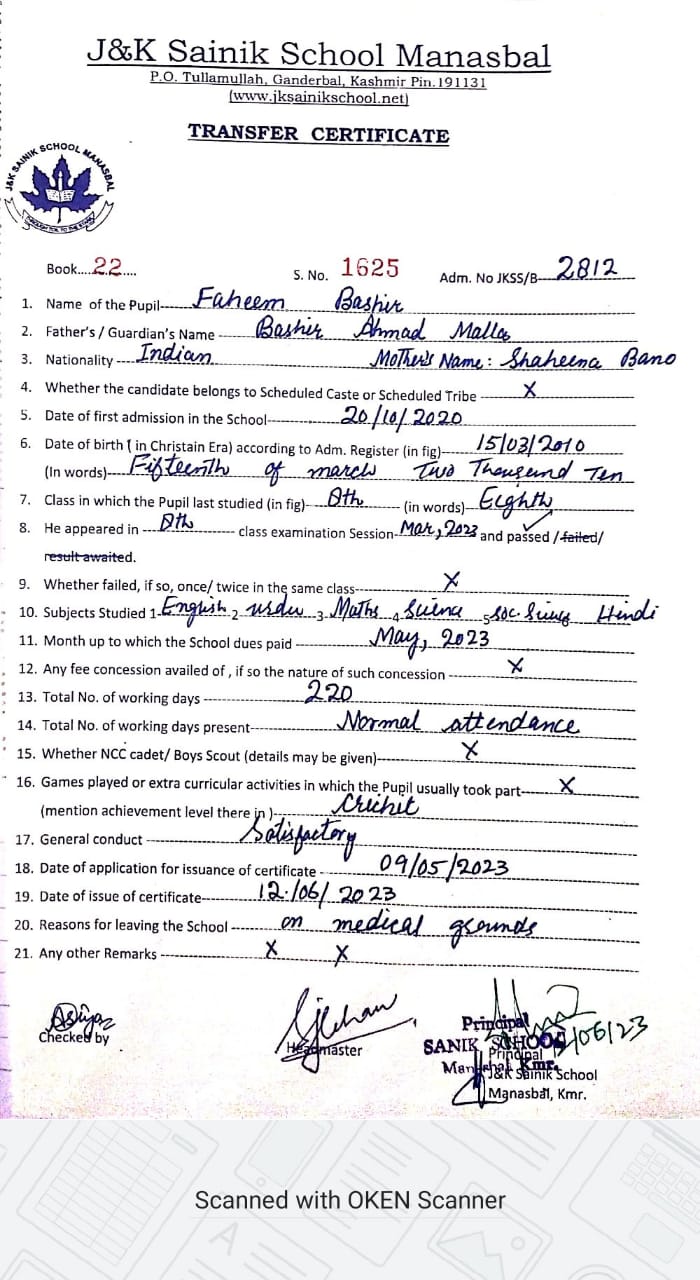 J&K Sainik School Manasbal
P.O. Tullamullah, Ganderbal, Kashmir Pin.191131
(www.jksainikschool.net)
TRANSFER CERTIFICATE
J&K SAINIK SCHOOL MANASBAL
Book....22.... S. No. 1625 Adm. No JKSS/B-2812
1. Name of the Pupil Faheem Bashir
2. Father's / Guardian's Name Bashir Ahmad Malla
3. Nationality Indian Mother's Name: Shaheena Bano
4. Whether the candidate belongs to Scheduled Caste or Scheduled Tribe X
5. Date of first admission in the School 20/10/2020
6. Date of birth ( in Christain Era) according to Adm. Register (in fig) 15/03/2010
(In words) Fifteenth of march Two Thousand Ten
7. Class in which the Pupil last studied (in fig) 8th (in words) Eighth
8. He appeared in 8th class examination Session Mar, 2023 and passed / failed/
result awaited.
9. Whether failed, if so, once/ twice in the same class X
10. Subjects Studied 1 English 2 urdu 3 Maths 4 Science 5 Soc. Science Hindi
11. Month up to which the School dues paid May, 2023
12. Any fee concession availed of , if so the nature of such concession X
13. Total No. of working days 220
14. Total No. of working days present Normal attendance
15. Whether NCC cadet/ Boys Scout (details may be given) X
16. Games played or extra curricular activities in which the Pupil usually took part X
(mention achievement level there in ) Cricket
17. General conduct Satisfactory
18. Date of application for issuance of certificate - 09/05/2023
19. Date of issue of certificate 12/06/2023
20. Reasons for leaving the School on medical grounds
21. Any other Remarks X X
Checked by
Headmaster
Principal
SANIK SCHOOL
Kmr.
Principal
J&K Sainik School
Manasbal, Kmr.
Scanned with OKEN Scanner